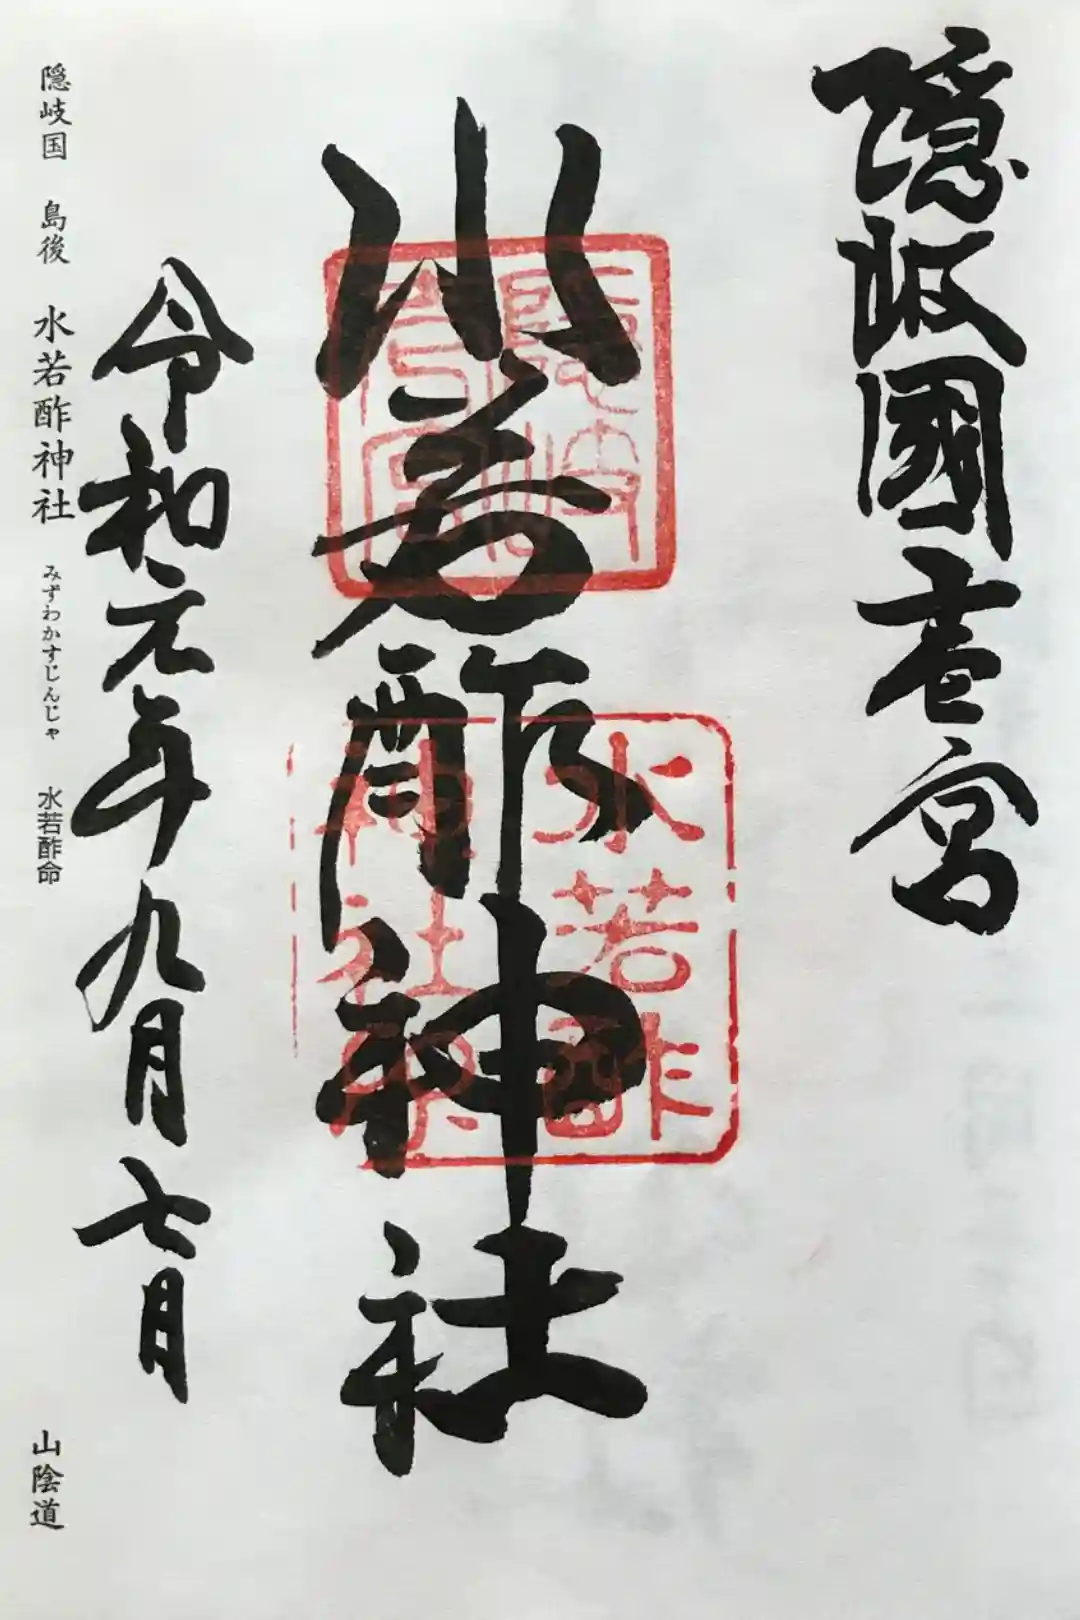 隠岐國壱宮
水若酢神社
隠岐
一宮
水若酢
神社
令和元年九月七日
隠岐国 島後 水若酢神社 みずわかすじんじゃ 水若酢命 山陰道